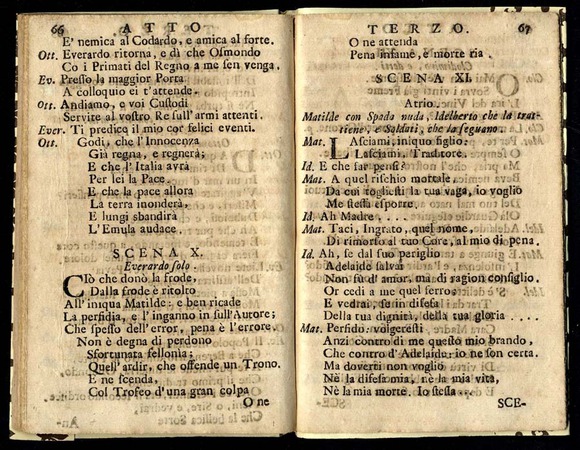 66 ATTO
E' nemica al Codardo, e amica al forte.
Ott. Everardo ritorna, e dì che Osmondo
Co i Primati del Regno a me sen venga.
Ev. Presso la maggior Porta
A colloquio ei t'attende.
Ott. Andiamo, e voi Custodi
Servite al vostro Re sull'armi attenti.
Ever. Ti predico il mio cor felici eventi.
Ott. Godi, che l'Innocenza
Già regna, e regnerà;
E che l'Italia avrà
Per lei la Pace.
E che la pace allora
La terra inonderà,
E lungi sbandirà
L'Emula audace.
SCENA X.
Everardo solo.
Ciò che donò la frode,
Dalla frode è ritolto
All'iniqua Matilde: e ben ricade
La perfidia, e l'inganno in sull'Autore;
Che spesso dell'error, pena è l'errore.
Non è degna di perdono
Sfortunata fellonia;
Quell'ardir, che offende un Trono.
E ne scenda,
Col Trofeo d'una gran colpa
O ne
TERZO. 67
O ne attenda
Pena infame, è morte ria.
SCENA XI.
Atrio.
Matilde con Spada nuda, Idelberto che la trat-
tiene, e Soldati, che la seguano.
Mat. Lasciami, iniquo figlio;
Lasciami, Traditore.
Id. E che far pensi?
Mat. A quel rischio mortale,
Da cui togliesti la tua vaga, io voglio
Me stessa esporre.
Id. Ah Madre....
Mat. Taci, Ingrato, quel nome,
Di rimorso al tuo Core, al mio di pena.
Id. Ah, se dal suo periglio
Adelaide salvai
Non fu d'amor, ma di ragion consiglio.
Or cedi a me quel ferro;
E vedrai, se in difesa
Della tua dignità, della tua gloria ....
Mat. Perfido: volgeresti
Anzi contro di me questo mio brando,
Che contro d'Adelaide: io ne son certa.
Ma doverti non voglio
Nè la difesa mia, nè la mia vita,
Nè la mia morte. Io stessa..
SCE-